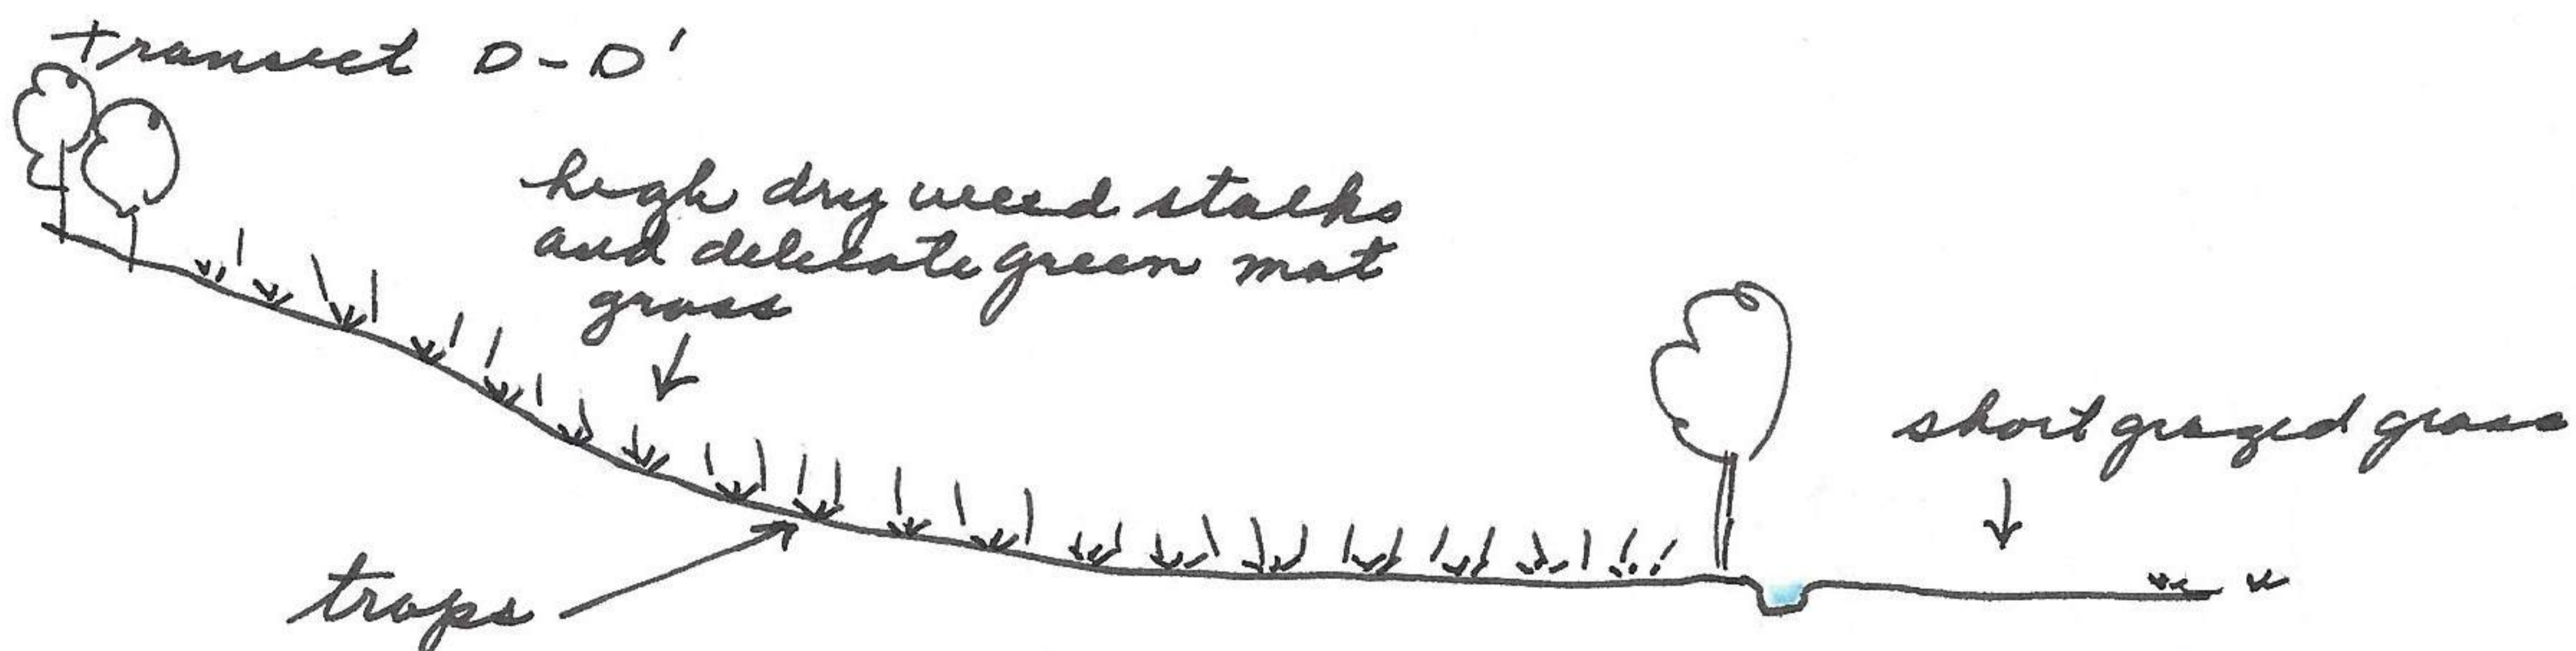 transect D-D'
high dry weed stalks
and delicate green mat
grass
short grazed grass
traps